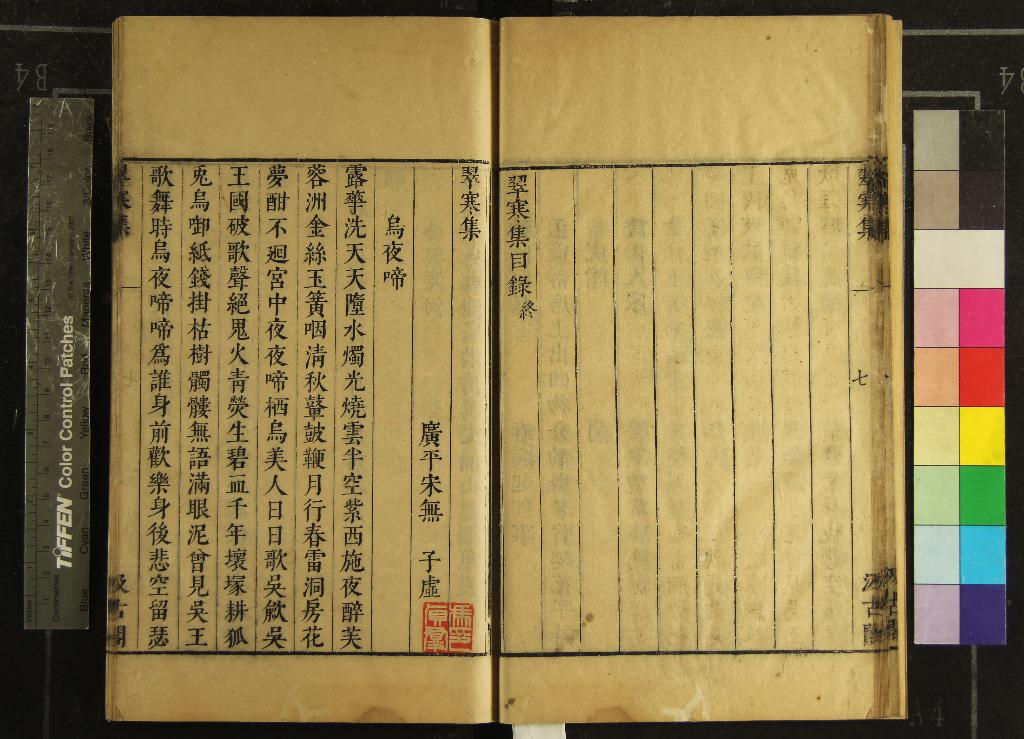 翠寒集目錄終
翠寒集
七
汲古閣
翠寒集
廣平宋無 子虛
烏夜啼
露華洗天天墮水燭光燒雲半空紫西施夜醉芙
蓉洲金絲玉簧咽清秋鼙鼓鞭月行春雷洞房花
夢酣不廻宮中夜夜啼栖烏美人日日歌吳歈吳
王國破歌聲絕鬼火青熒生碧血千年壞塚耕狐
兎烏啣紙錢掛枯樹髑髏無語滿眼泥曾見吳王
歌舞時烏夜啼啼為誰身前歡樂身後悲空留瑟
翠寒集
一
汲古閣
TIFFEN Color Control Patches
Blue
Cyan
Green
Yellow
Red
Magenta
White
3/Color
Black
Inches
Centimetres
B4
B4
A4